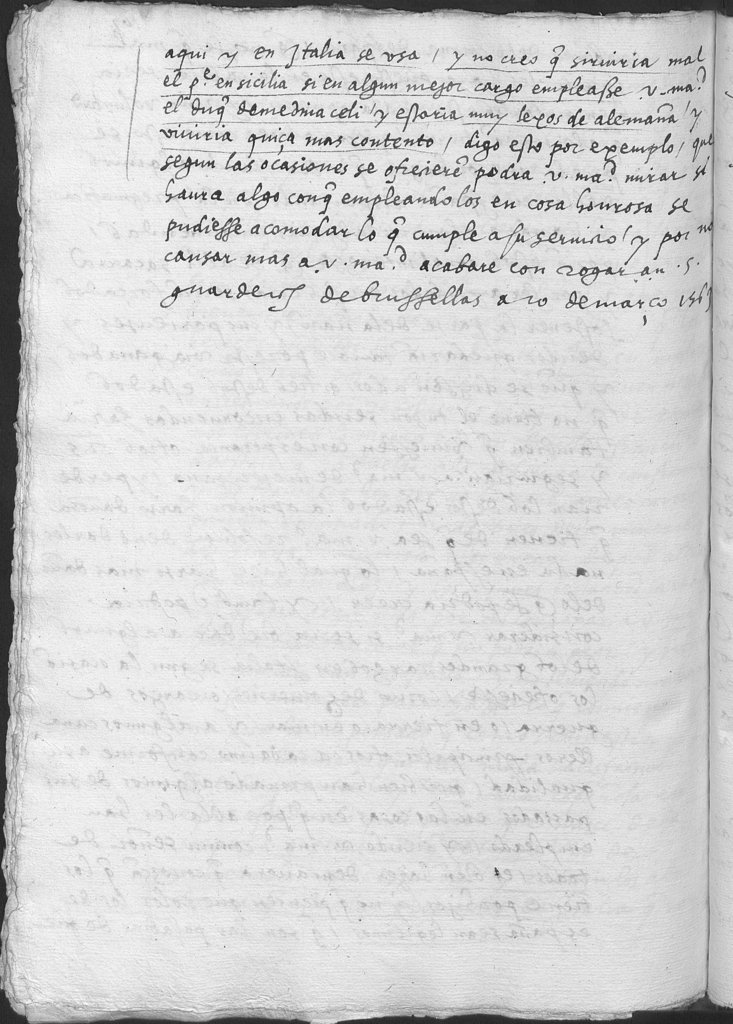 aqui y en Italia se usa / y no creo q̃ sirviria mal
el p.e en sicilia si en algun mejor cargo empleasse v. ma.d
el duq̃ de medina celi / y estaria muy lexos de alemaña / y
viviria quiça mas contento / digo esto por exemplo / que
segun las ocasiones se ofreciere podra v. ma.d mirar si
haura algo conq̃ empleandolos en cosa honrosa se
pudiesse acomodar lo q̃ cumple a su servicio / y por no
cansar mas a v. ma.d acabare con rogar a n. s.
guarde de brussellas a 10 de março 156